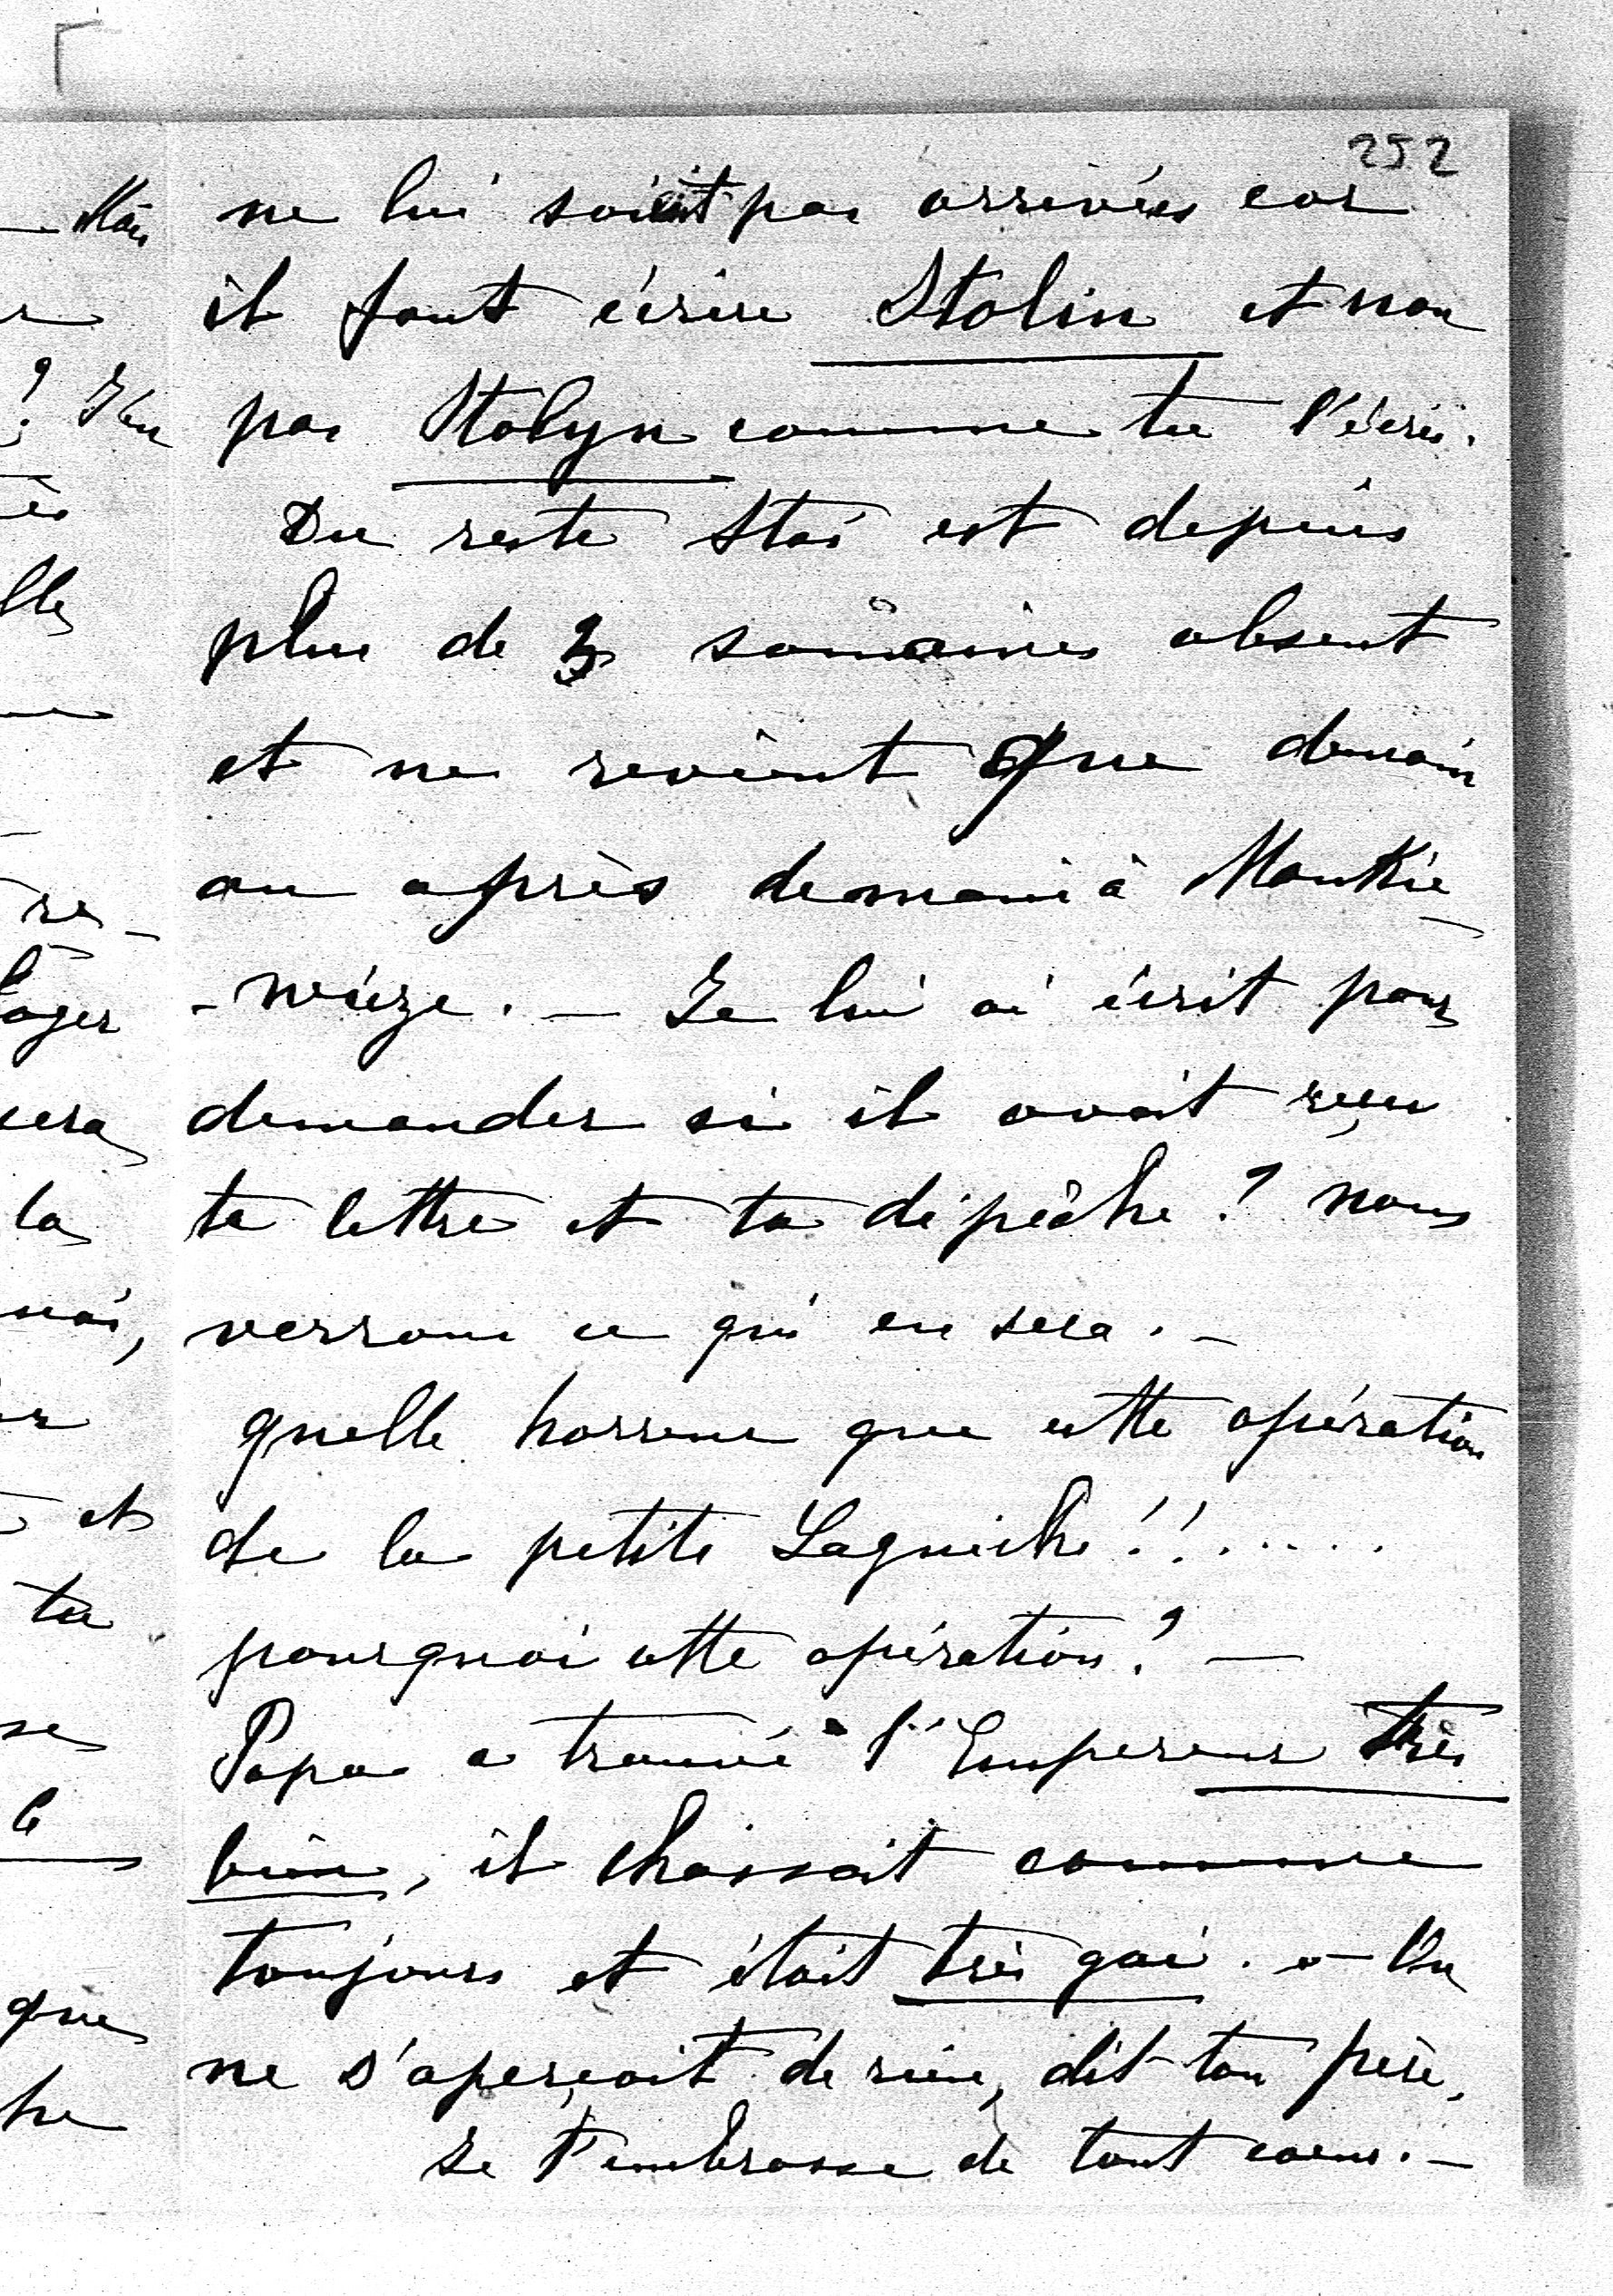 252
ne lui soient pas arrivées car
il faut écrire Stolin et non
pas Stolyn comme tu l'écris.
Du reste Staś est depuis
plus de 3 semaines absent
et ne revient que demain
ou après demain à Mankie-
-wicze. — Je lui ai écrit pour
demander si il avait reçu
ta lettre et ta dépêche? nous
verrons ce qui en sera. —
quelle horreur que cette opération
de la petite !!......
pourquoi cette opération? —
Papa a trouvé l'Empereur très
bien, il chassait comme
toujours et était très gai. — On
ne s'aperçoit de rien, dit ton père.
Je t'embrasse de tout coeur. —